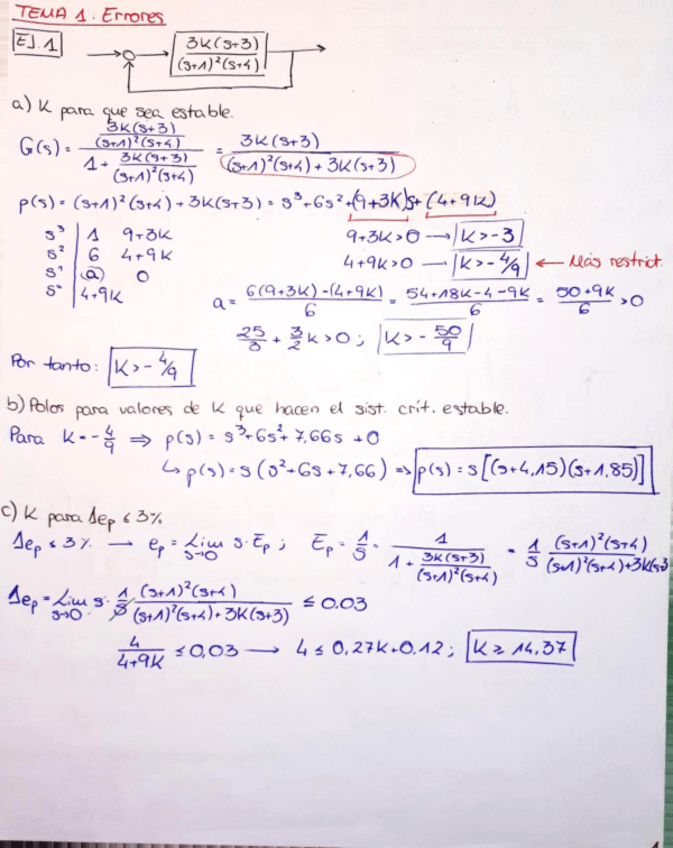 TEMA 1. Errores
EJ. 1
3K(s+3)
(s+1)²(s+4)
a) K para que sea estable.
G(s) = (3K(s+3)/((s+1)²(s+4))) / (1 + 3K(s+3)/((s+1)²(s+4))) = 3K(s+3) / ((s+1)²(s+4) + 3K(s+3))
p(s) = (s+1)²(s+4) + 3K(s+3) = s³+6s²+(9+3K)s+(4+9K)
s³ | 1 9+3K
s² | 6 4+9K
s¹ | (a) 0
s⁰ | 4+9K
9+3K>0 → K>-3
4+9K>0 → K>-4/9 ← Más restrict.
a = (6(9+3K)-(4+9K))/6 = (54+18K-4-9K)/6 = (50+9K)/6 >0
25/3 + 3/2 K>0 ; K>-50/9
Por tanto: K>-4/9
b) Polos para valores de K que hacen el sist. crít. estable.
Para K=-4/9 ⇒ p(s) = s³+6s²+7,66s+0
↳ p(s) = s(s²+6s+7,66) ⇒ p(s) = s[(s+4,15)(s+1,85)]
c) K para Δep ≤ 3%
Δep ≤ 3% → ep = Lim s→0 s·Ep ; Ep = 1/s · 1/(1 + 3K(s+3)/((s+1)²(s+4))) = 1/s (s+1)²(s+4)/((s+1)²(s+4)+3K(s+3
Δep = Lim s→0 s· 1/s (s+1)²(s+4)/((s+1)²(s+4)+3K(s+3)) ≤ 0,03
4/(4+9K) ≤ 0,03 → 4 ≤ 0,27K+0,12 ; K ≥ 14,37